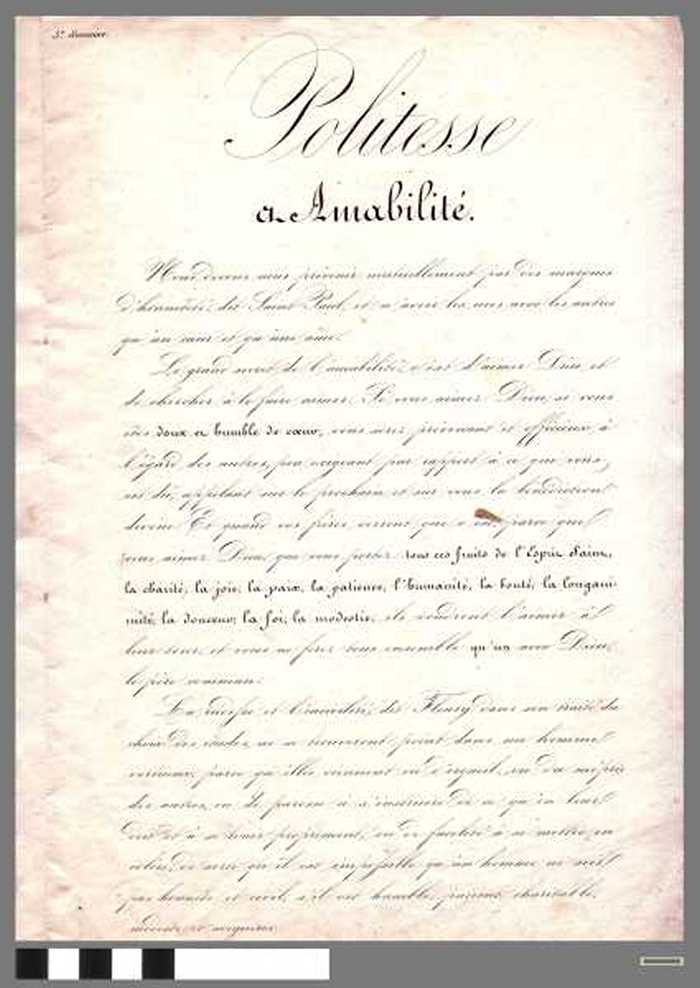 Politesse
et Amabilité.
Nous devons nous prévenir mutuellement par des marques
d'honnêteté, dit Saint Paul, et n'avoir les uns avec les autres
qu'un cœur et qu'une âme.
Le grand secret de l'amabilité, c'est d'aimer Dieu et
de chercher à le faire aimer. Si vous aimez Dieu, si vous
êtes doux et humble de cœur, vous serez prévenant et officieux à
l'égard des autres, peu exigeant par rapport à ce qui vous
est dû, appelant sur le prochain et sur vous la bénédiction
divine. Et quand vos frères verront que c'est parce que
vous aimez Dieu, que vous portez tous ces fruits de l'Esprit Saint,
la charité, la joie, la paix, la patience, l'humanité, la bonté, la longani-
mité, la douceur, la foi, la modestie, ils voudront l'aimer à
leur tour, et vous ne ferez tous ensemble qu'un avec Dieu,
le père commun.
La rudesse et l'incivilité, dit Fleury dans son traité du
choix des études, ne se trouveront point dans un homme
vertueux, parce qu'elles viennent ou d'orgueil, ou du mépris
des autres, ou de paresse à s'instruire de ce qu'on leur
doit et à se tenir proprement, ou de facilité à se mettre en
colère, de sorte qu'il est impossible qu'un homme ne soit
pas honnête et civil, s'il est humble, patient, charitable,
modeste et